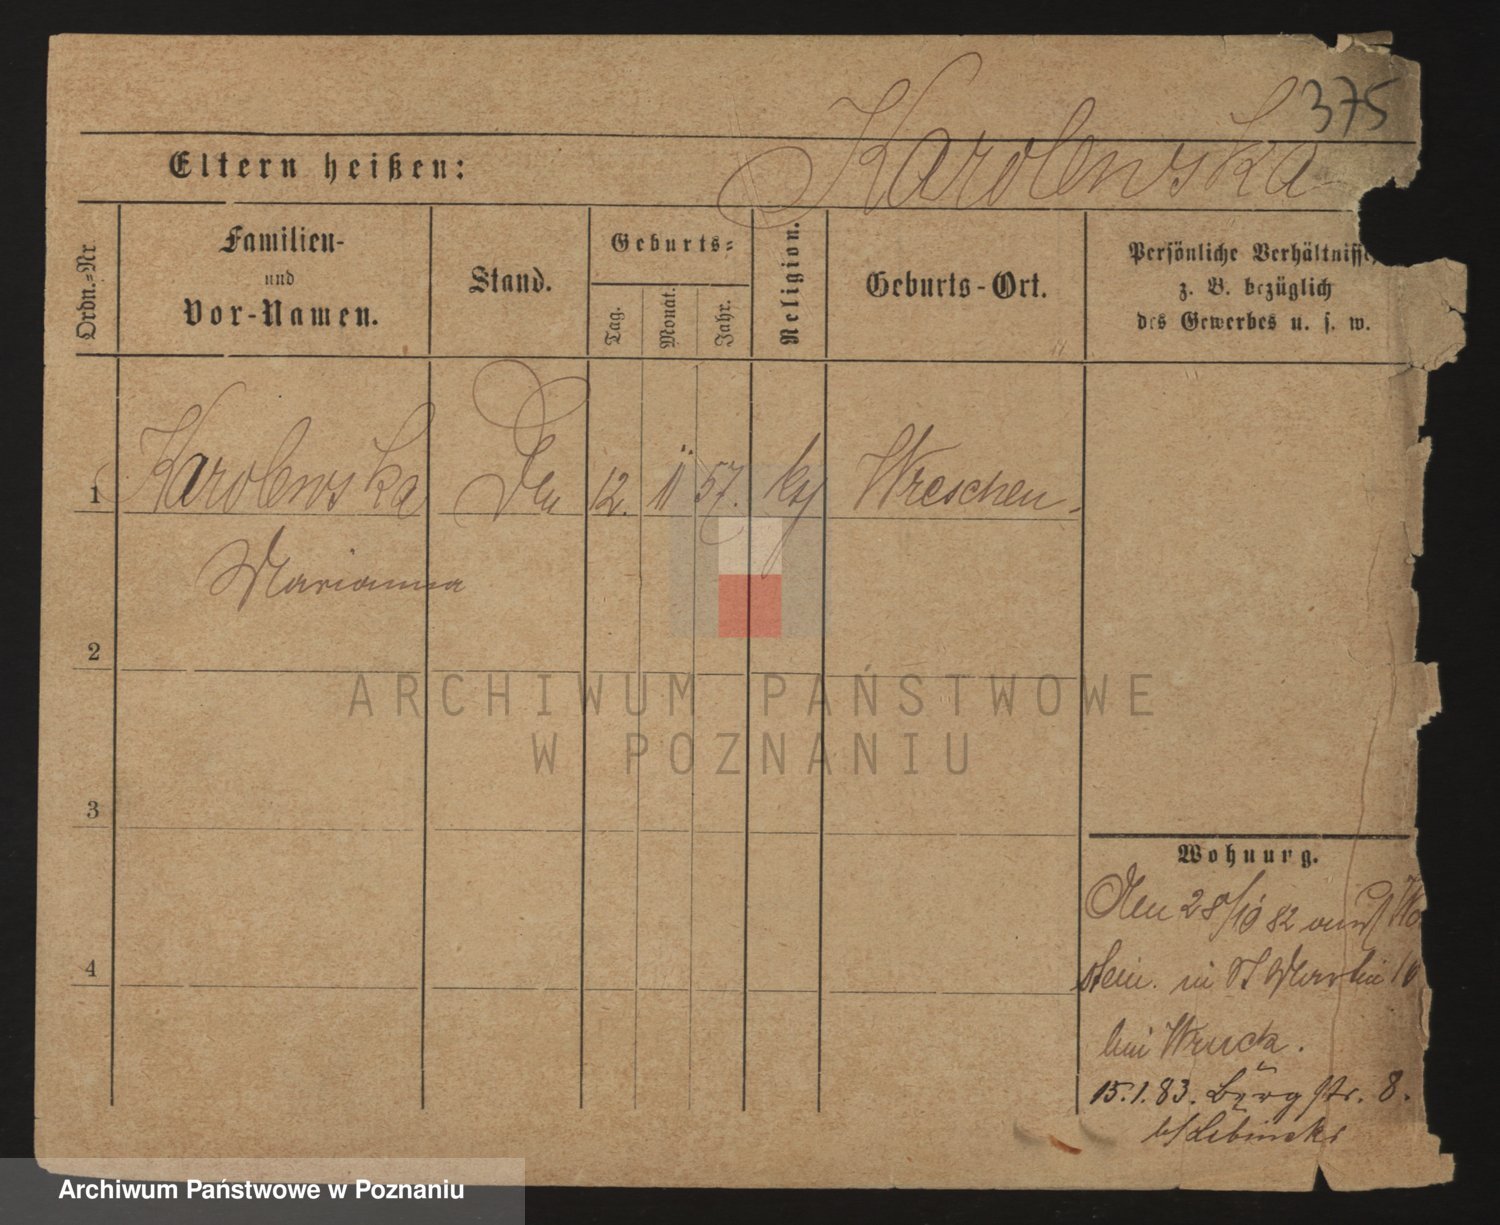 375
Karolewska
Eltern heißen:
Ordn.-Nr
Familien-
und
Vor-Namen.
Stand.
Geburts-
Tag.
Monat.
Jahr.
Religion.
Geburts-Ort.
Persönliche Verhältnisse,
z. B. bezüglich
des Gewerbes u. s. w.
1 Karolewska 12. 11 57. Wreschen.
Marianna
2
ARCHIWUM PAŃSTWOWE
W POZNANIU
3
4
Wohnung.
28/10 82
stein. in St Martin
bei Wruck.
15.1.83. Burg str. 8.
Archiwum Państwowe w Poznaniu